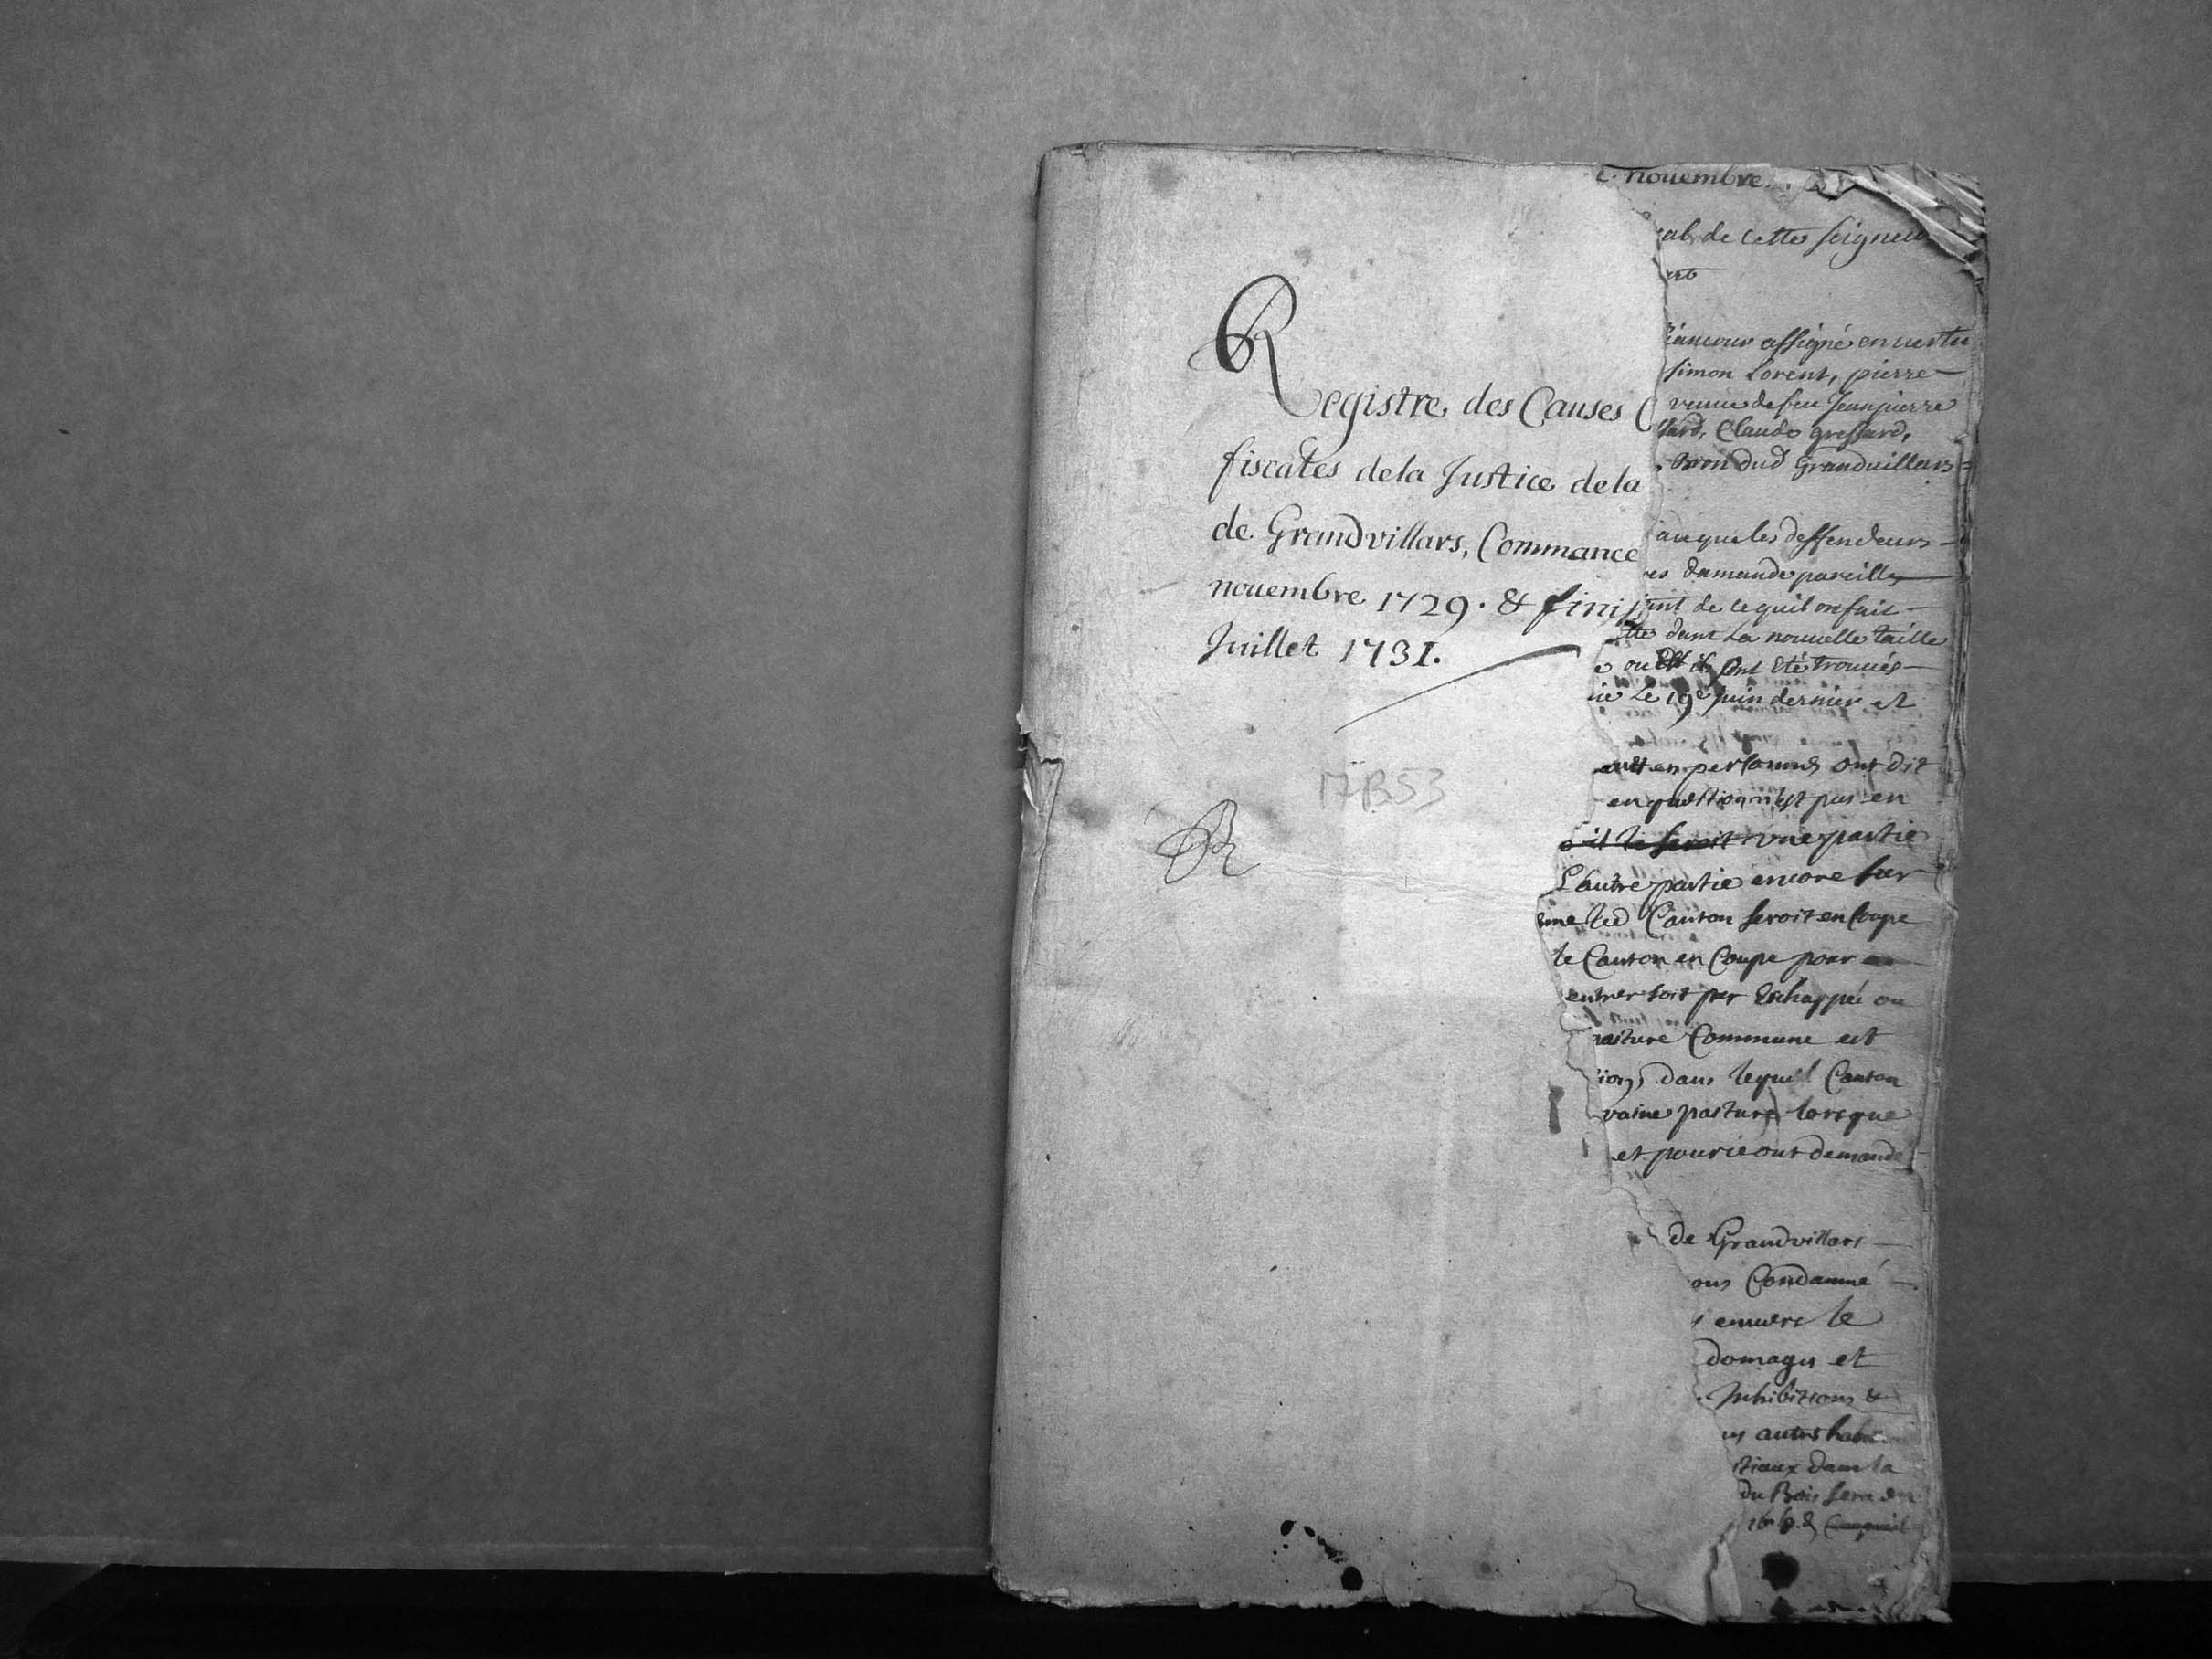 Registre des Causes C
fiscales de la Justice de la
de Grandvillars, Commance
nouembre 1729. & fini
Juillet 1731.
17B53
nouembre
cal de cette seigneu
assigné en uertu
simon Lorent, pierre
veuue de feu Jean pierre
Claude gressard,
dud Granduillars
aueque les deffendeurs
es damande pareille
de ce quil ont fait
dans La nouuelle taille
ou ils ont été trouués
Le 19e juin dernier et
en personnes ont dit
en question n'est pas en
il le seroit une partie
L'autre partie encore sur
led Canton seroit en Coupe
le Canton en Coupe pour
entrer soit par Eschappée ou
pasture Commune est
dans lequel Canton
vaine pasture lorsque
et pourie ont demandé
de Grandvillars
ons Condamné
enuers le
domages et
Inhibitions &
es autres habi
stiaux dans la
du Bois sera